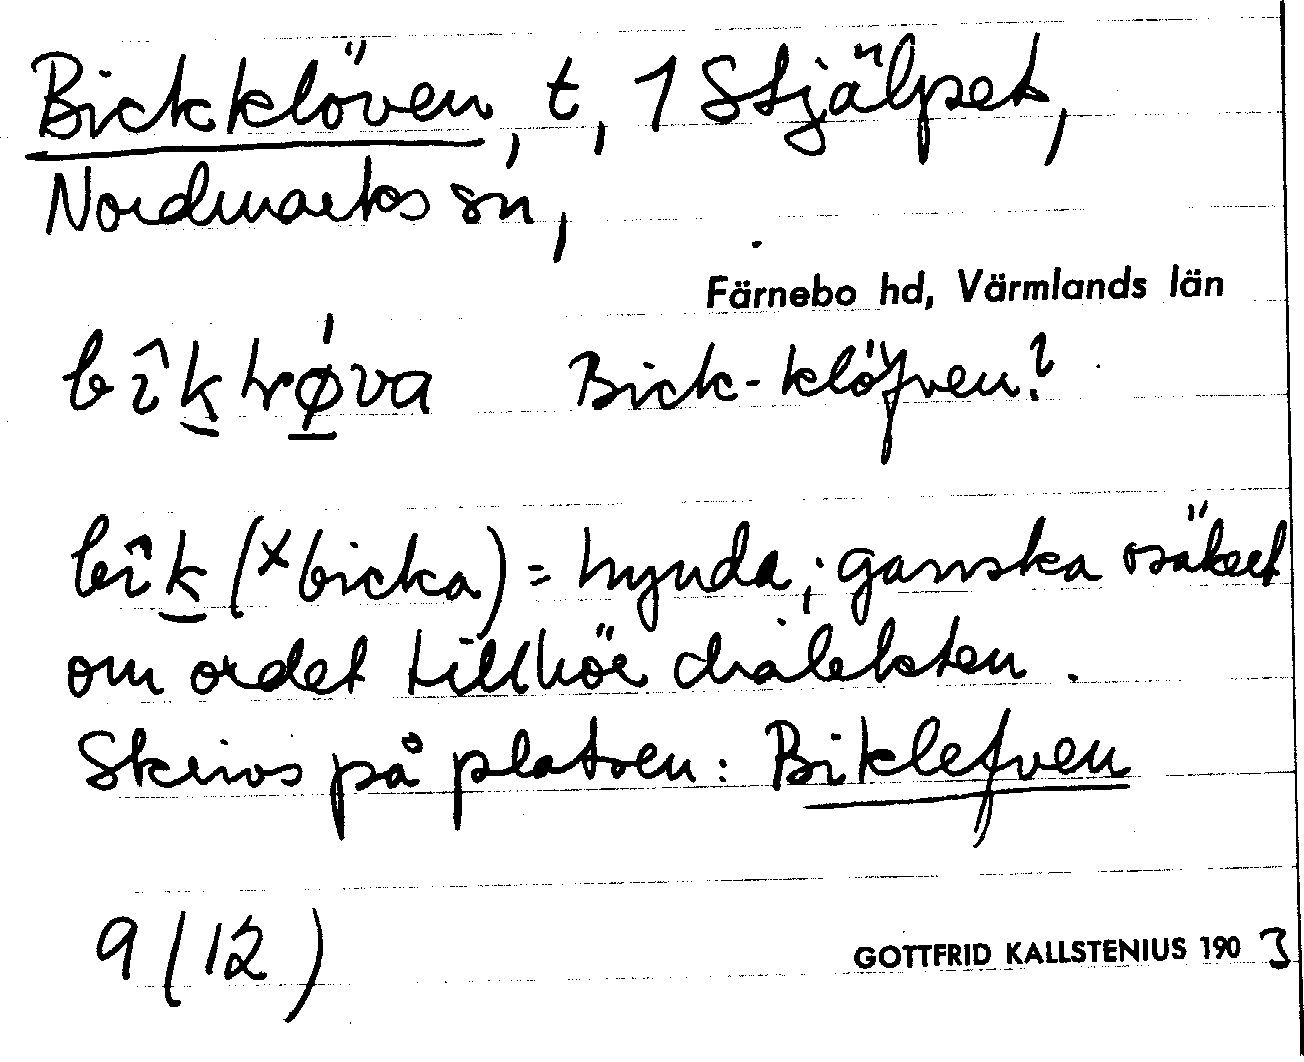 Bickklöven, t, 1 Stjälpet,
Nordmarks sn,
Färnebo hd, Värmlands län
bîk krǿva Bick-klöfven?
bîk (×bicka) = hynda; ganska osäkert
om ordet tillhör dialekten.
Skrivs på platsen: Biklefven
9 (12)
GOTTFRID KALLSTENIUS 1903